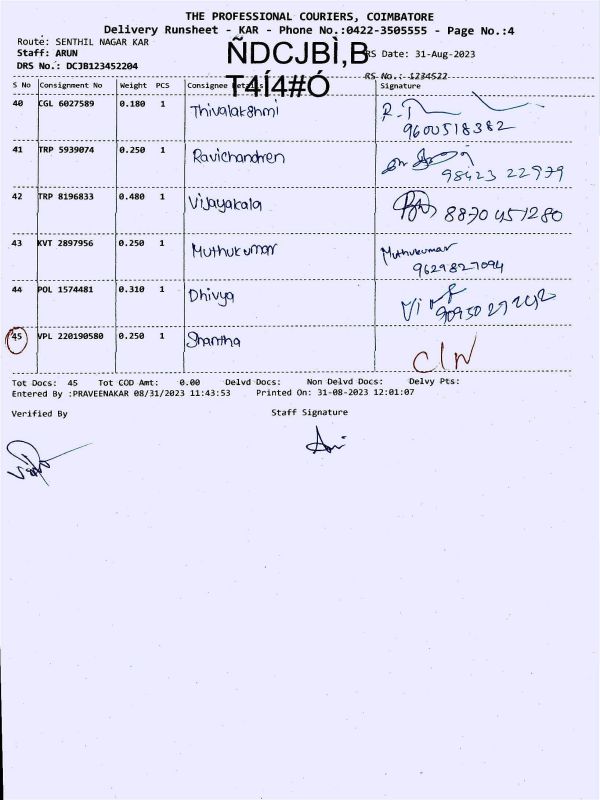 THE PROFESSIONAL COURIERS, COIMBATORE
Delivery Runsheet - KAR - Phone No.:0422-3505555 - Page No.:4
Route: SENTHIL NAGAR KAR
ÑDCJBÌ,B
Staff: ARUN RS Date: 31-Aug-2023
DRS No.: DCJB123452204
T4Í4#Ó RS No.: 1234522
S No Consignment No Weight PCS Consignee Details Signature
40 CGL 6027589 0.180 1 Thivalakshmi R-T
9600518382
41 TRP 5939074 0.250 1 Ravichandren
98423 22979
42 TRP 8196833 0.480 1 Vijayakala 8870451280
43 KVT 2897956 0.250 1 Muthukumar Muthukumar
9629827094
44 POL 1574481 0.310 1 Dhivya
45 VPL 220190580 0.250 1 Shantha
Tot Docs: 45 Tot COD Amt: 0.00 Delvd Docs: Non Delvd Docs: Delvy Pts:
Entered By :PRAVEENAKAR 08/31/2023 11:43:53 Printed On: 31-08-2023 12:01:07
Verified By Staff Signature